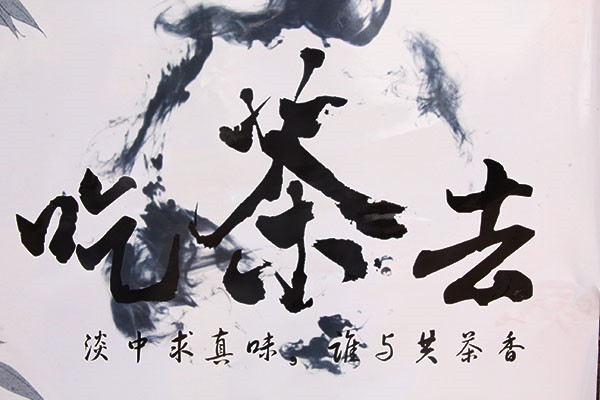 吃茶去
淡中求真味，谁与共茶香